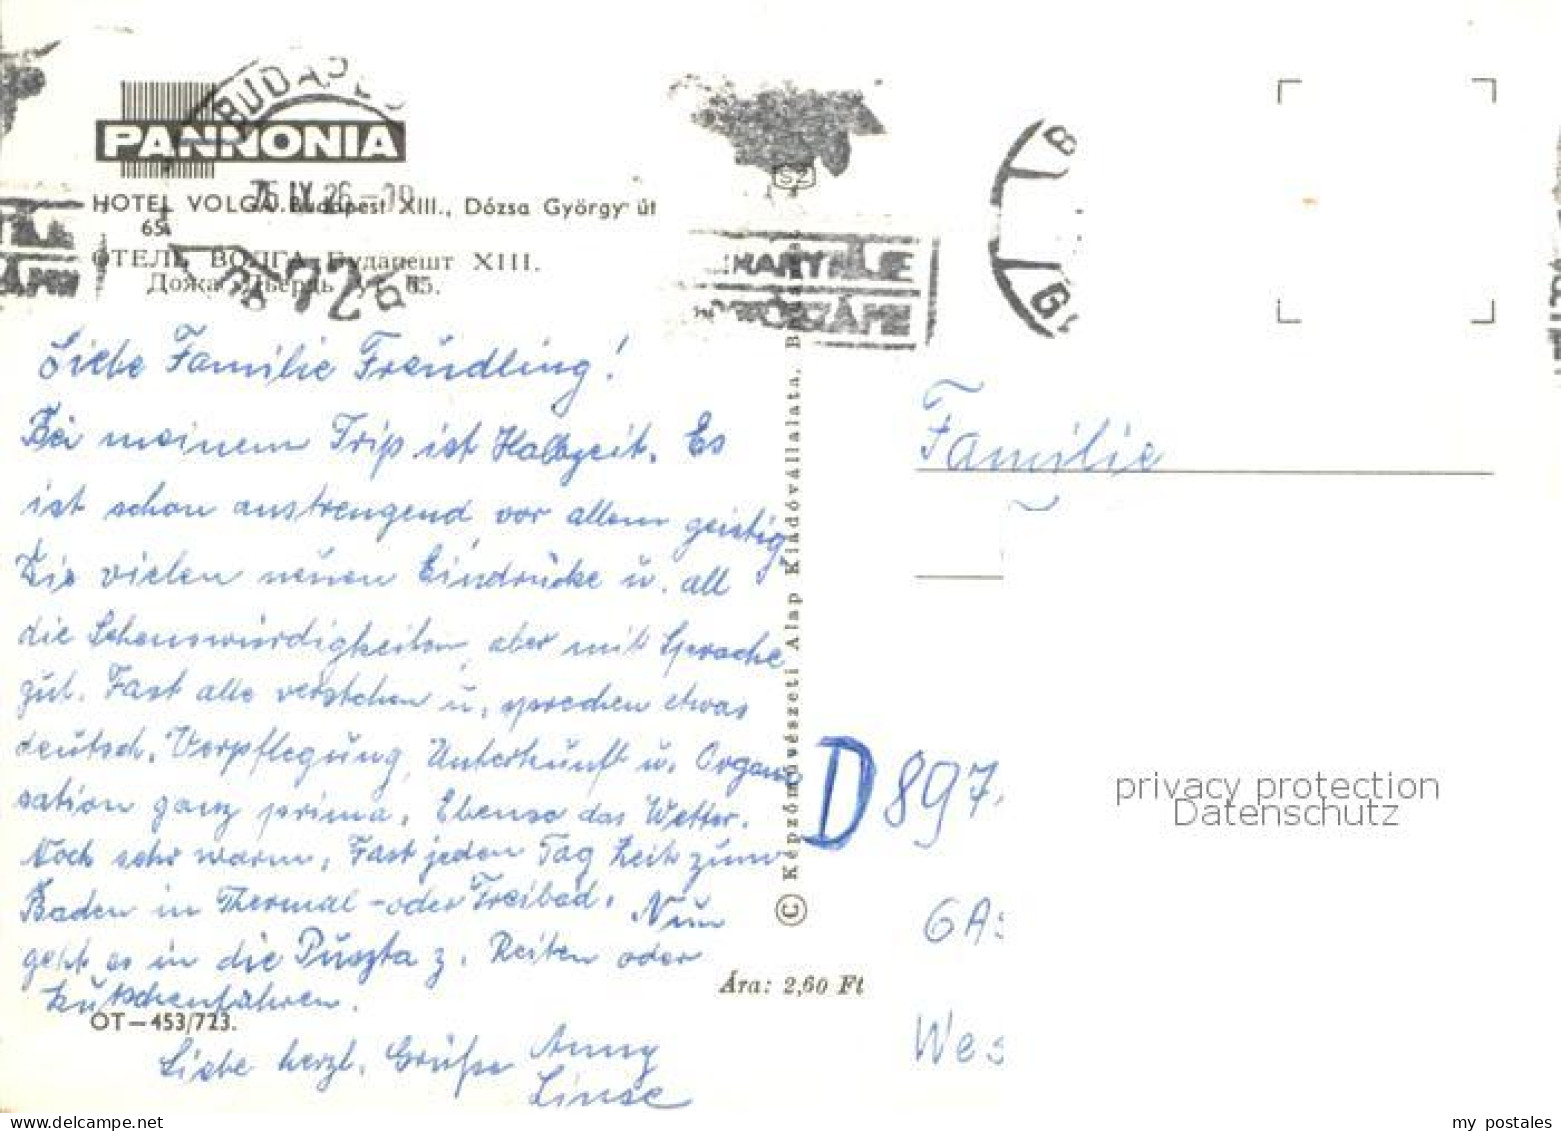 BUDAPES
PANNONIA
75 IX 26 -19
HOTEL VOLGA. Budapest XIII., Dózsa György út
65.
ОТЕЛЬ ВОЛГА Будапешт XIII.
Дожа Дьердь ут. 65.
72
SZ
Liebe Familie Freundling!
Bei meinem Trip ist Halbzeit. Es
ist schon anstrengend vor allem geistig
Die vielen neuen Eindrücke u. all
die Sehenswürdigkeiten, aber mit Sprache
gut. Fast alle verstehen u. sprechen etwas
deutsch. Verpflegung, Unterkunft u. Organi
sation ganz prima. Ebenso das Wetter.
Noch sehr warm. Fast jeden Tag Zeit zum
Baden in Thermal-oder Freibad. Nun
geht es in die Puszta z. Reiten oder
Kutschenfahren.
OT—453/723.
Liebe herzl. Grüße Anny
Linse
© Képzőművészeti Alap Kiadóvállalata, B
Ára: 2,60 Ft
Familie
D 897
GAS
Wes
privacy protection
Datenschutz
www.delcampe.net
my_postales